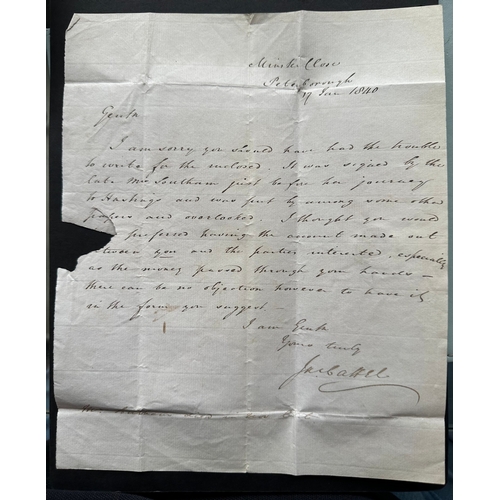 Minster Close
Peterborough
17 Jan 1840
Gentn
I am sorry you should have had the trouble
to write for the enclosed. It was signed by the
late Mrs Southam just before her journey
to Hastings and was put by among some other
papers and overlooked. I thought you would
preferred having the account made out
between you and the parties interested, especially
as the money passed through your hands –
there can be no objection however to have it
in the form you suggest –
I am Gentn
Yours truly